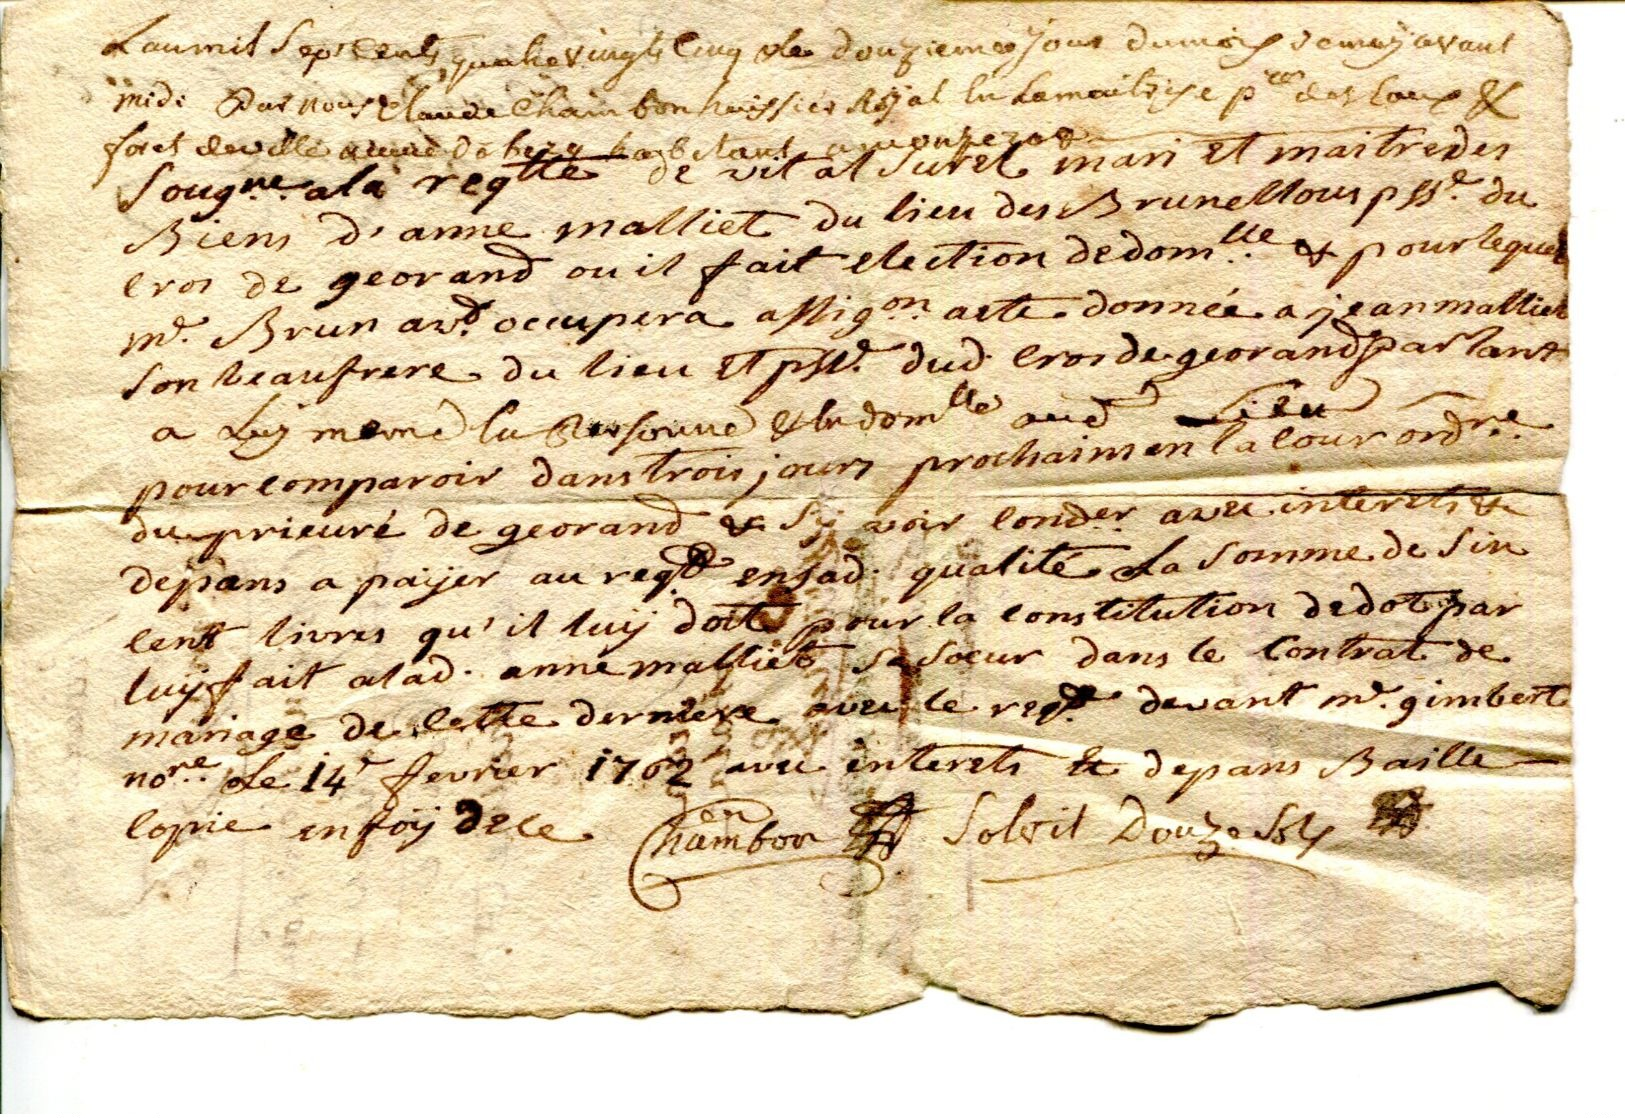 Lan mil Sept Cents quatre vingts Cinq & le douzieme jour du mois de may avant
midi Par nous Claude Chambon huissier Royal en la maitrise p.re des Eaux &
foret de ville neuve de berg habitant a monpezat
Sougne. ala reqtte de vital Suret mari et maitre des
Biens d'anne malliet du lieu des Brunellous psse. du
cros de georand ou il fait election de domlle & pour lequel
me. Brun avt. occupera assigon. acte donnée a jean malliet
Son beaufrere du lieu et psse. dud. Cros de georand parlant
a Luy meme en Personne & en domlle aud Lieu
pour comparoir dans trois jours prochains en la Cour ordre.
du prieuré de georand & Sy voir conder. avec interets &
depans a paÿer au reqt ensad. qualité La Somme de Six
cent livres qu'il luÿ doit pour la constitution de dot par
luÿ fait alad. anne malliet Sa Soeur dans le Contrat de
mariage de Cette derniere avec le reqt. devant me. gimbert
nore. Le 14e fevrier 1762 avec interets & depans Baillé
Copie en foÿ de ce Chambon Solvit Douze Sols